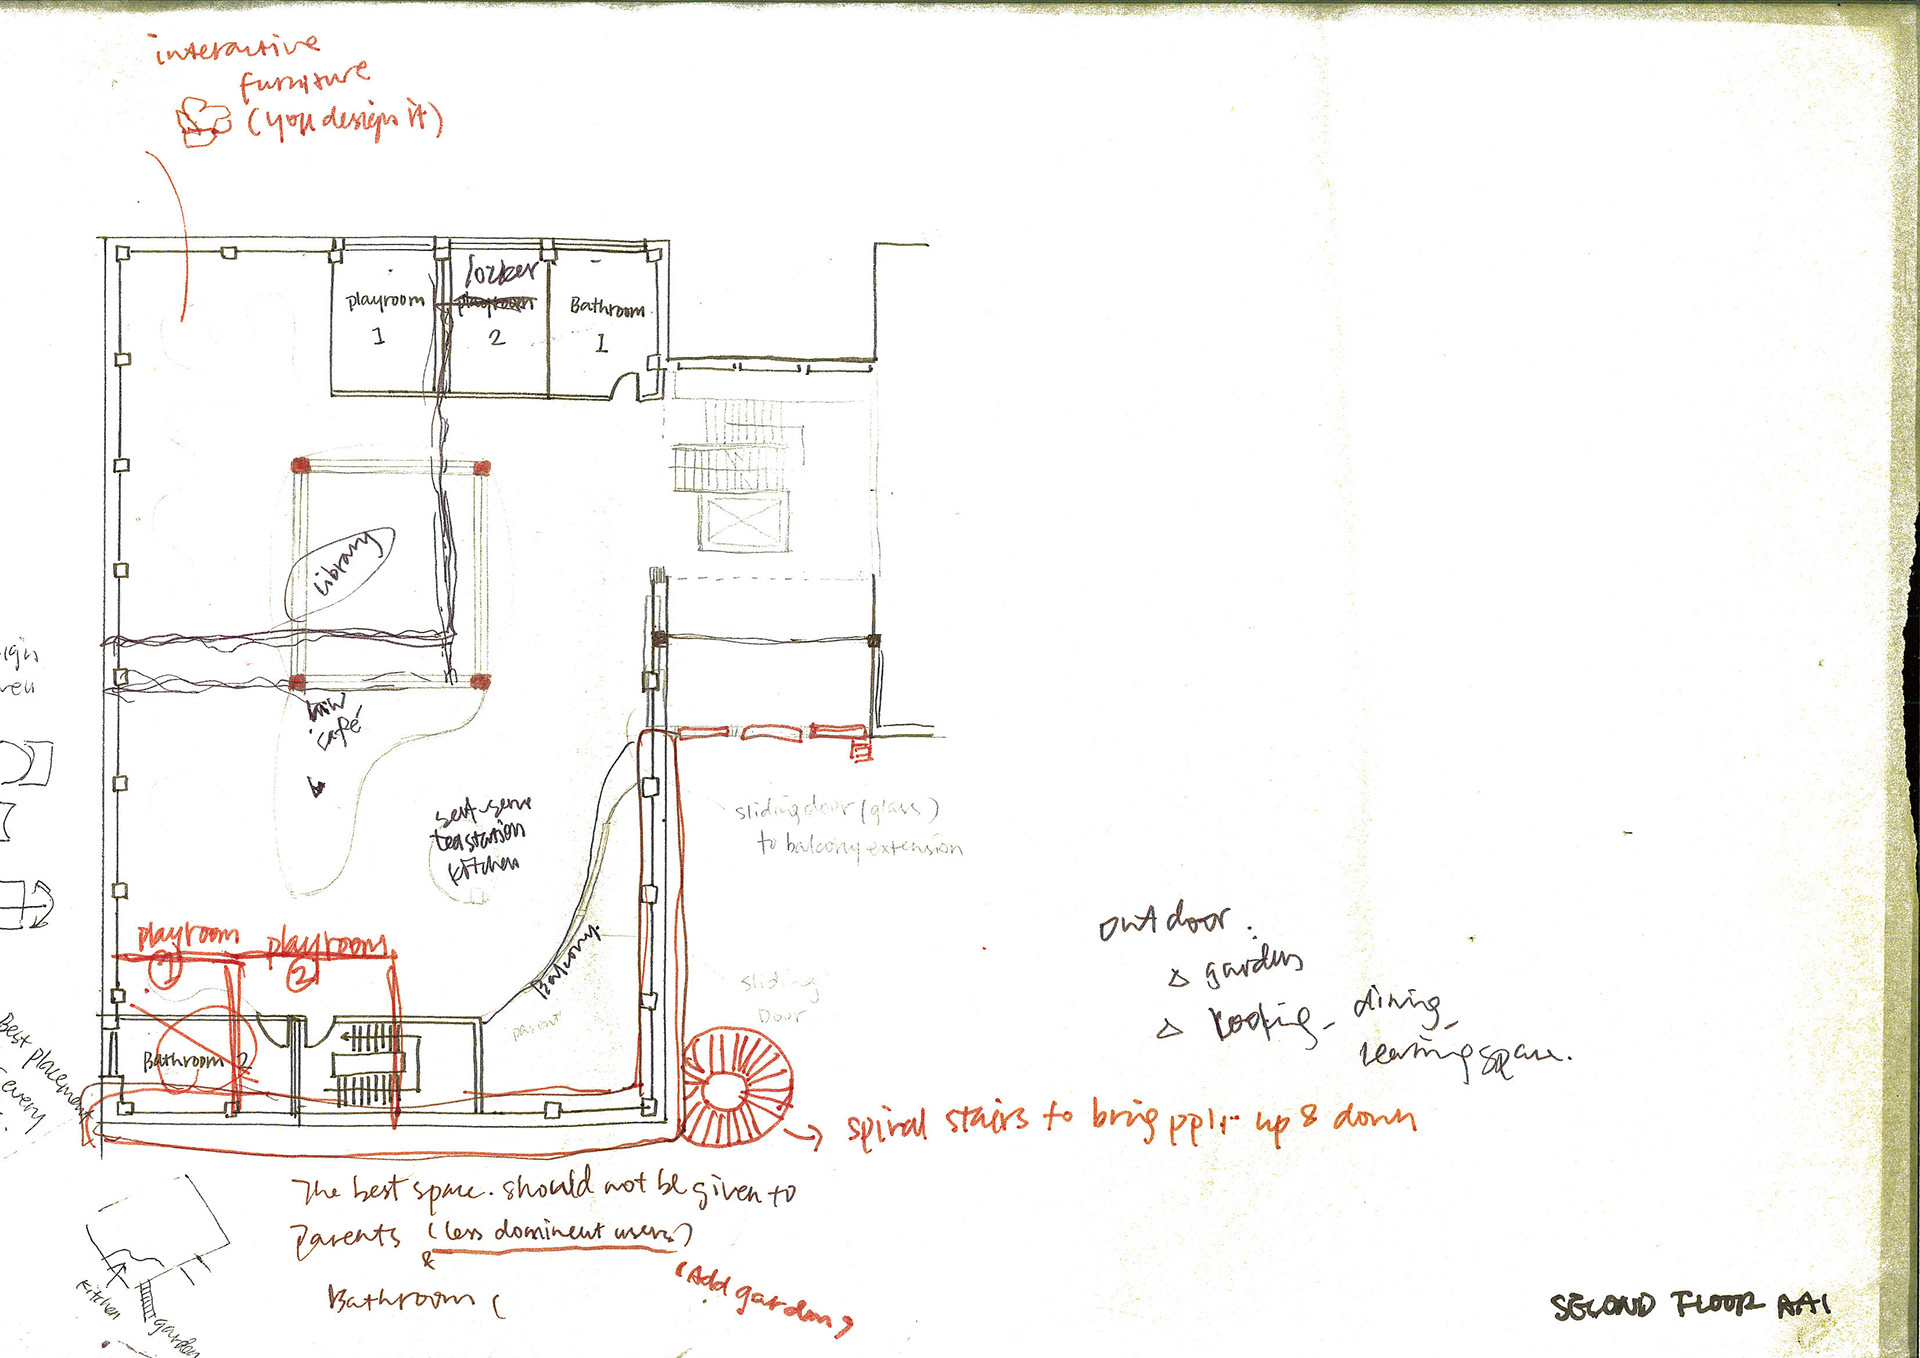 interactive
furniture
(you design it)
locker
playroom
1
playroom
2
Bathroom
1
Library
café
self-serve
tea station
kitchen
sliding door (glass)
to balcony extension
Balcony
parent
sliding
Door
playroom
1
playroom
2
Bathroom 2
Best placement
every
outdoor:
garden
dining
spiral stairs to bring ppl up & down
The best space. should not be given to
Parents (less dominent users)
&
Bathroom (
(Add garden)
kitchen
garden
SECOND FLOOR AA1